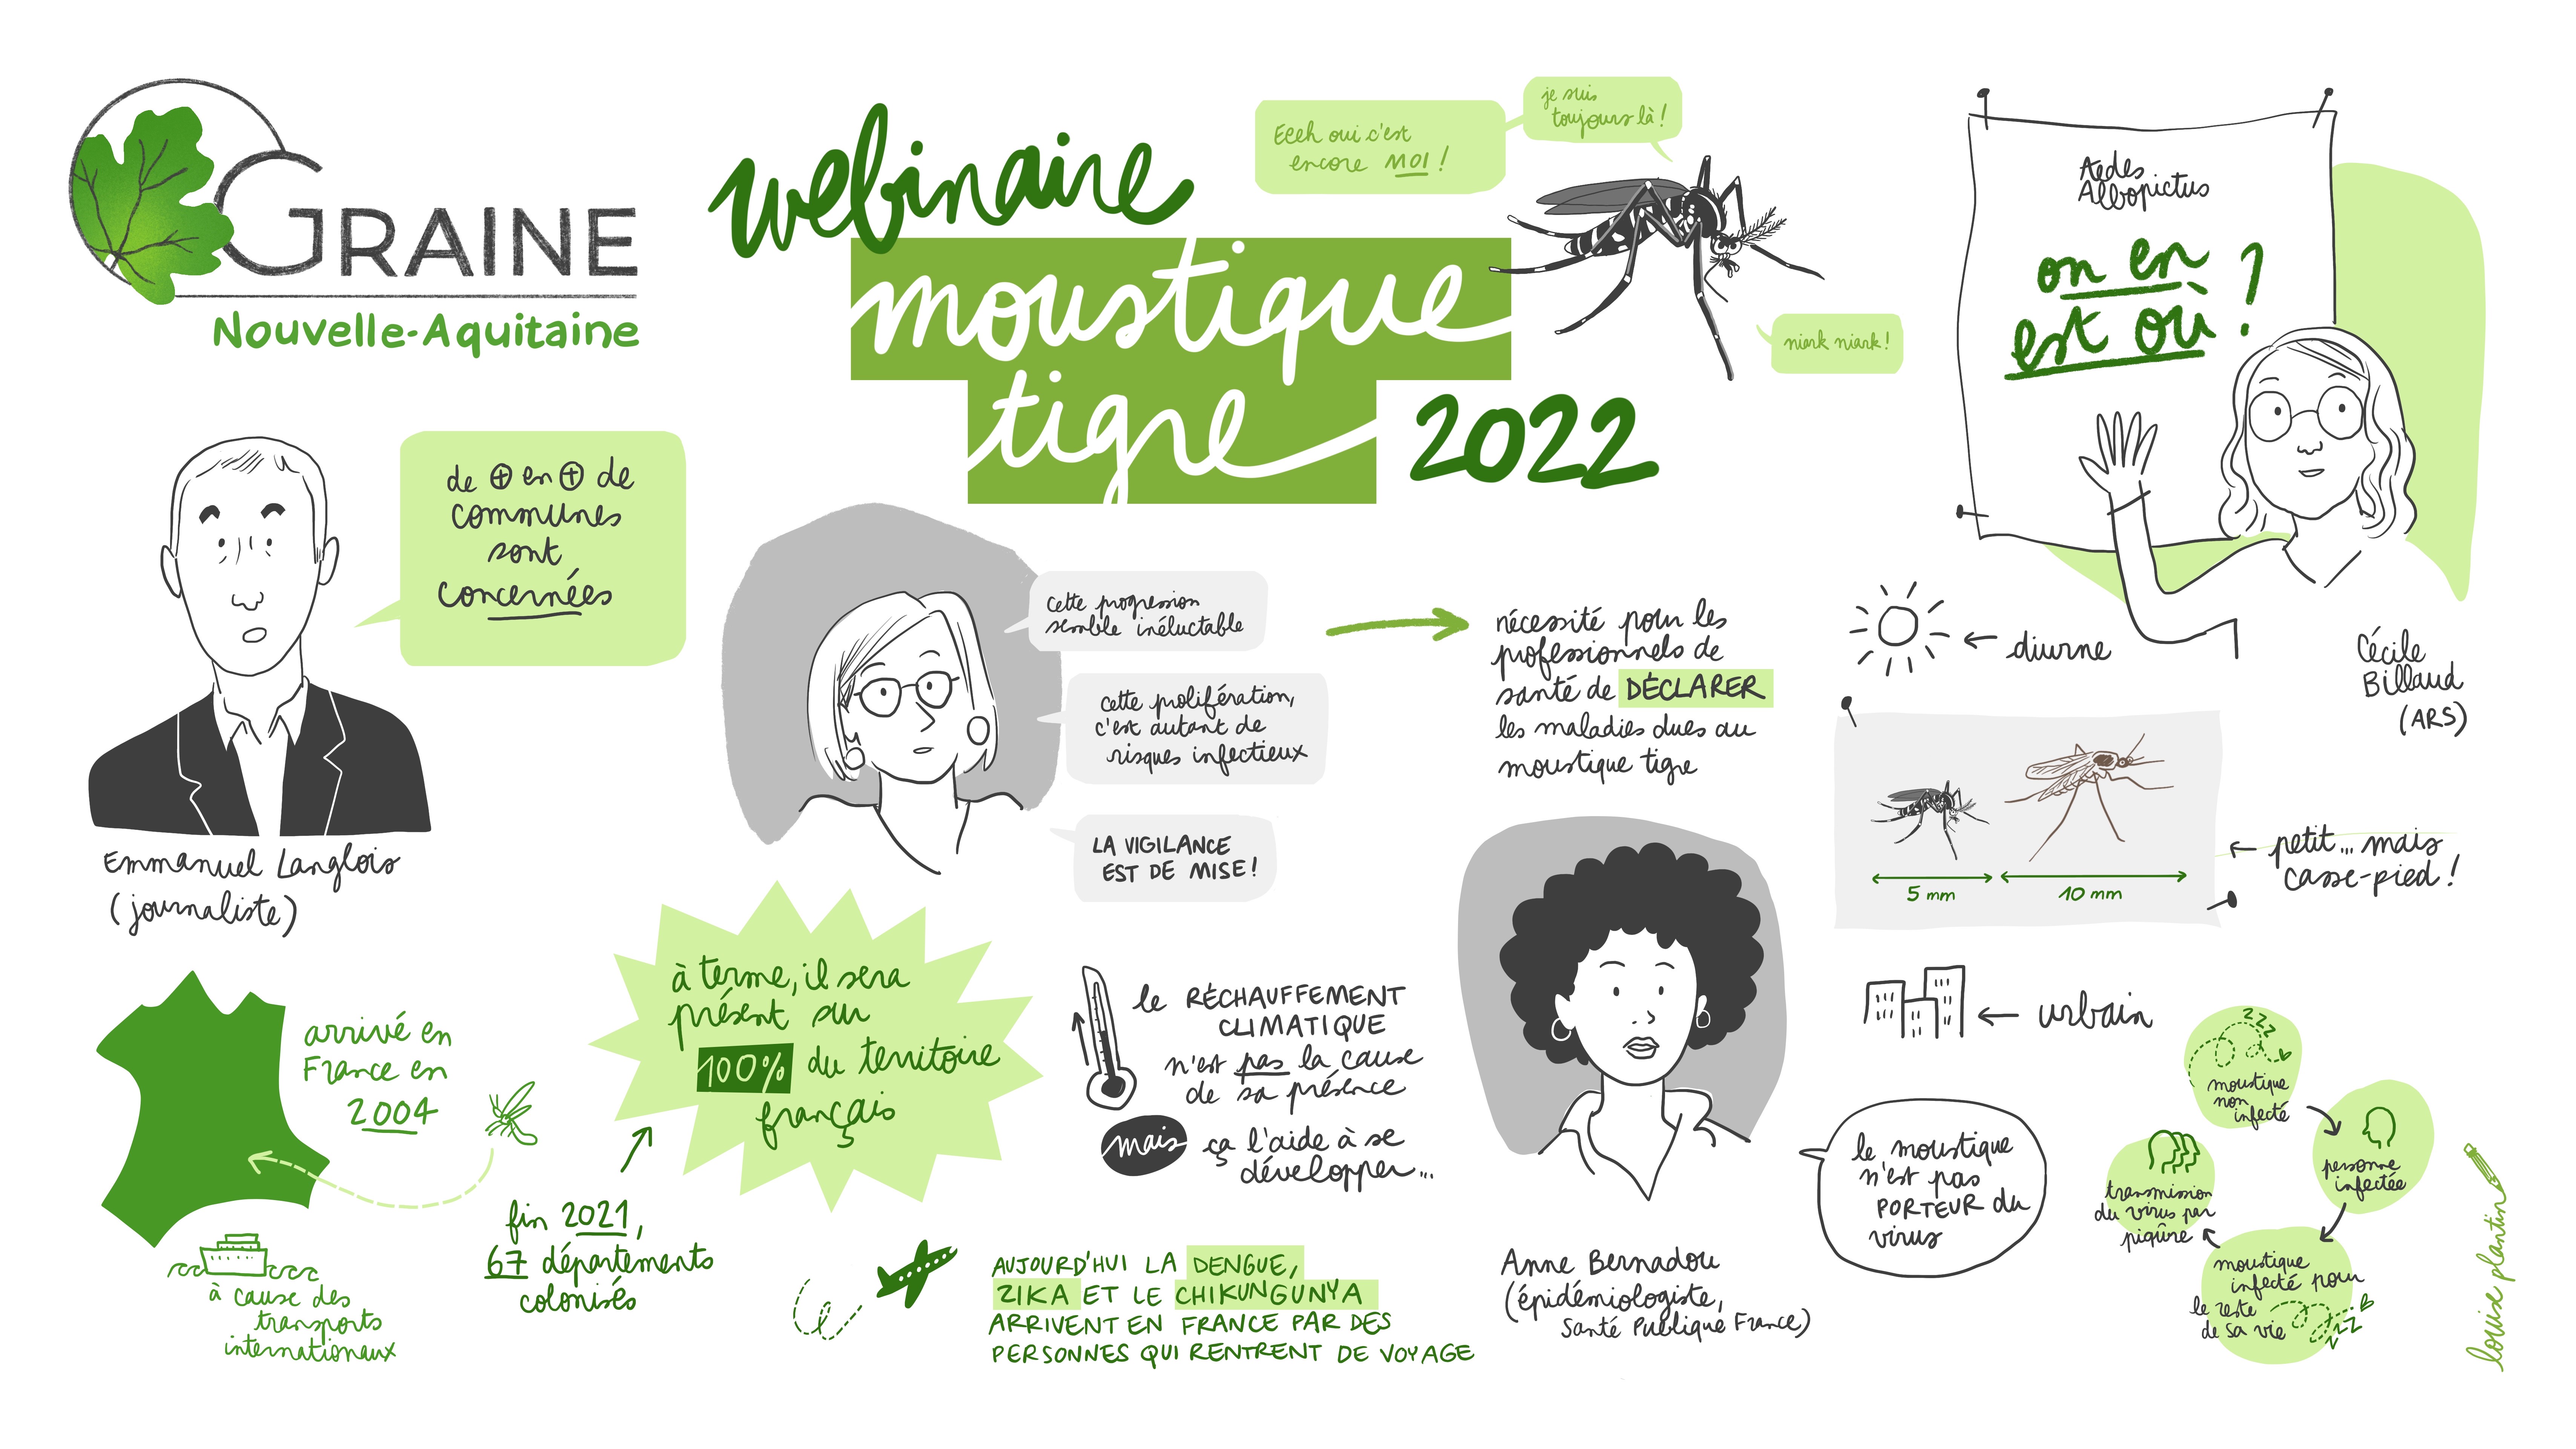 GRAINE
Nouvelle-Aquitaine
webinaire
moustique
tigre
2022
Eeeh oui c'est
encore MOI !
je suis
toujours là !
niark niark !
Aedes
Albopictus
on en
est où ?
Cécile
Billaud
(ARS)
de ⊕ en ⊕ de
communes
sont
concernées
Emmanuel Langlois
(journaliste)
cette progression
semble inéluctable
cette prolifération,
c'est autant de
risques infectieux
LA VIGILANCE
EST DE MISE !
nécessité pour les
professionnels de
santé de DÉCLARER
les maladies dues au
moustique tigre
diurne
5 mm
10 mm
petit... mais
casse-pied !
urbain
arrivé en
France en
2004
à cause des
transports
internationaux
fin 2021,
67 départements
colonisés
à terme, il sera
présent sur
100% du territoire
français
le RÉCHAUFFEMENT
CLIMATIQUE
n'est pas la cause
de sa présence
mais ça l'aide à se
développer...
AUJOURD'HUI LA DENGUE,
ZIKA ET LE CHIKUNGUNYA
ARRIVENT EN FRANCE PAR DES
PERSONNES QUI RENTRENT DE VOYAGE
Anne Bernadou
(épidémiologiste,
Santé Publique France)
le moustique
n'est pas
PORTEUR du
virus
zzz
moustique
non
infecté
personne
infectée
moustique
infecté pour
le reste
de sa vie
zzz
transmission
du virus par
piqûre
louise plantin